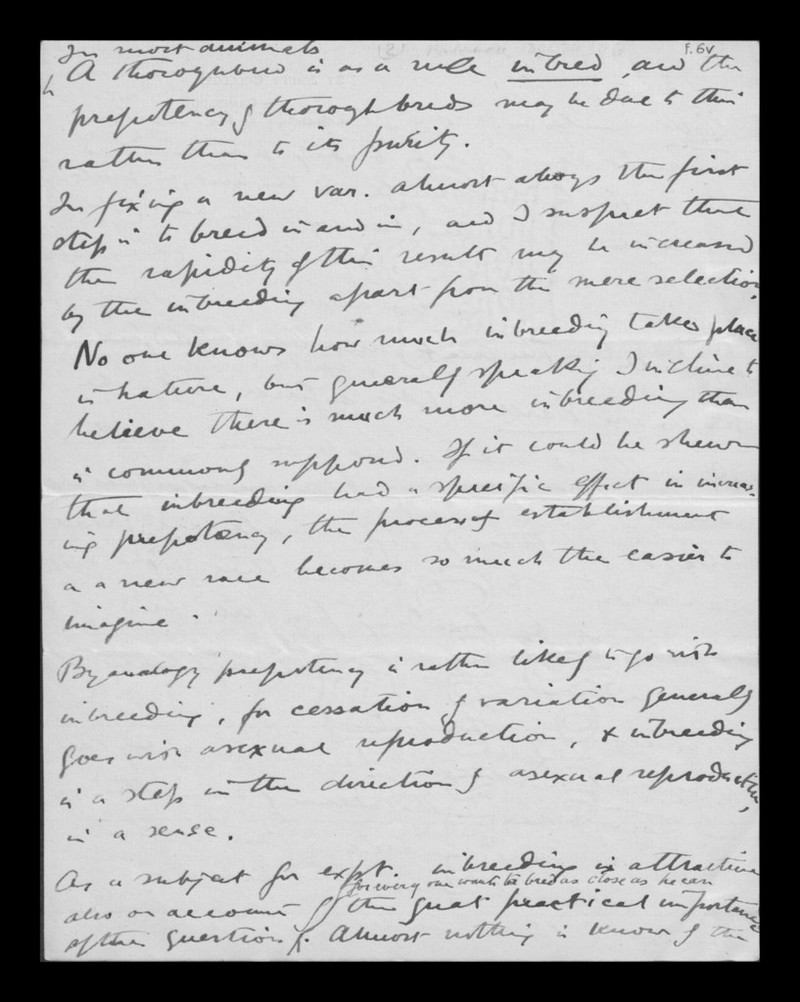 F. 6v
In most animals
A thoroughbred is as a rule inbred, and the
prepotency of thoroughbreds may be due to this
rather than to its purity.
In fixing a new var. almost always the first
step is to breed in and in, and I suspect that
the rapidity of this result may be increased
by the inbreeding apart from the mere selection.
No one knows how much inbreeding takes place
in nature, but generally speaking I incline to
believe there is much more inbreeding than
is commonly supposed. If it could be shewn
that inbreeding had a specific effect in increas-
ing prepotency, the process of establishment
a a new race becomes so much the easier to
imagine.
By analogy prepotency is rather likely to go with
inbreeding, for cessation of variation generally
goes with asexual reproduction, & inbreeding
is a step in the direction of asexual reproduction,
in a sense.
As a subject for expt. inbreeding is attractive
for every one wants to breed as close as he can
also on account of the great practical importance
of the question. Almost nothing is known of the